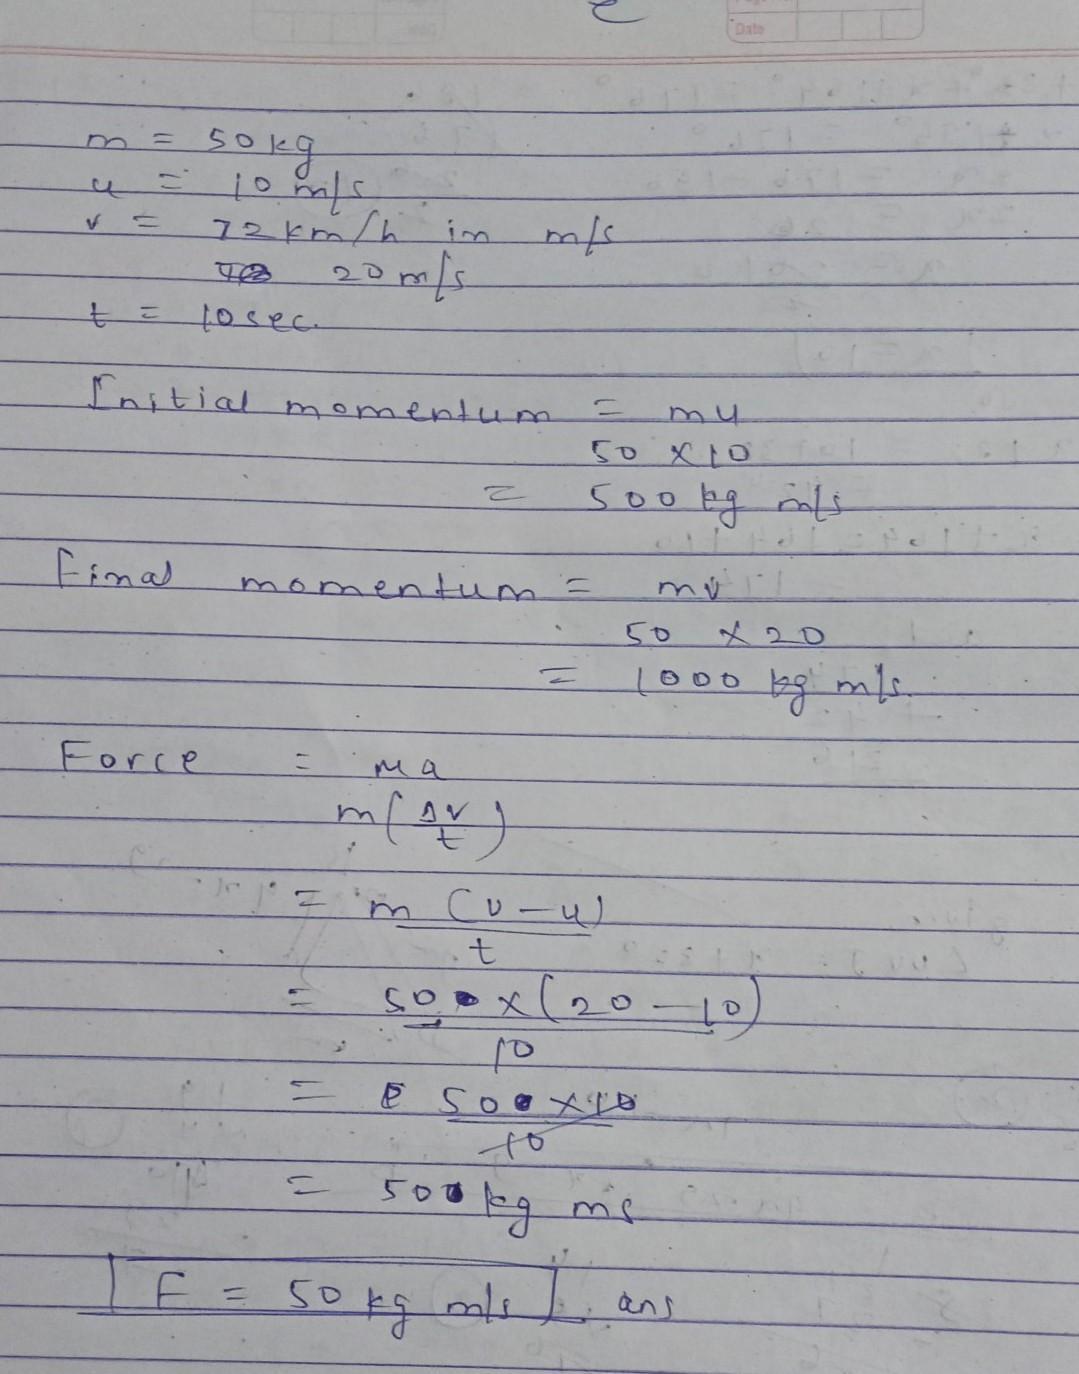 Date
m = 50 kg
u = 10 m/s
v = 72 km/h in m/s
20 m/s
t = 10 sec.
Initial momentum = mu
50 × 10
= 500 kg m/s
Final momentum = mv
50 × 20
= 1000 kg m/s.
Force = ma
m(Δv/t)
= m (v-u)
t
= 50 × (20 - 10)
10
= 50 × 10
10
= 50 kg ms
F = 50 kg m/s ans